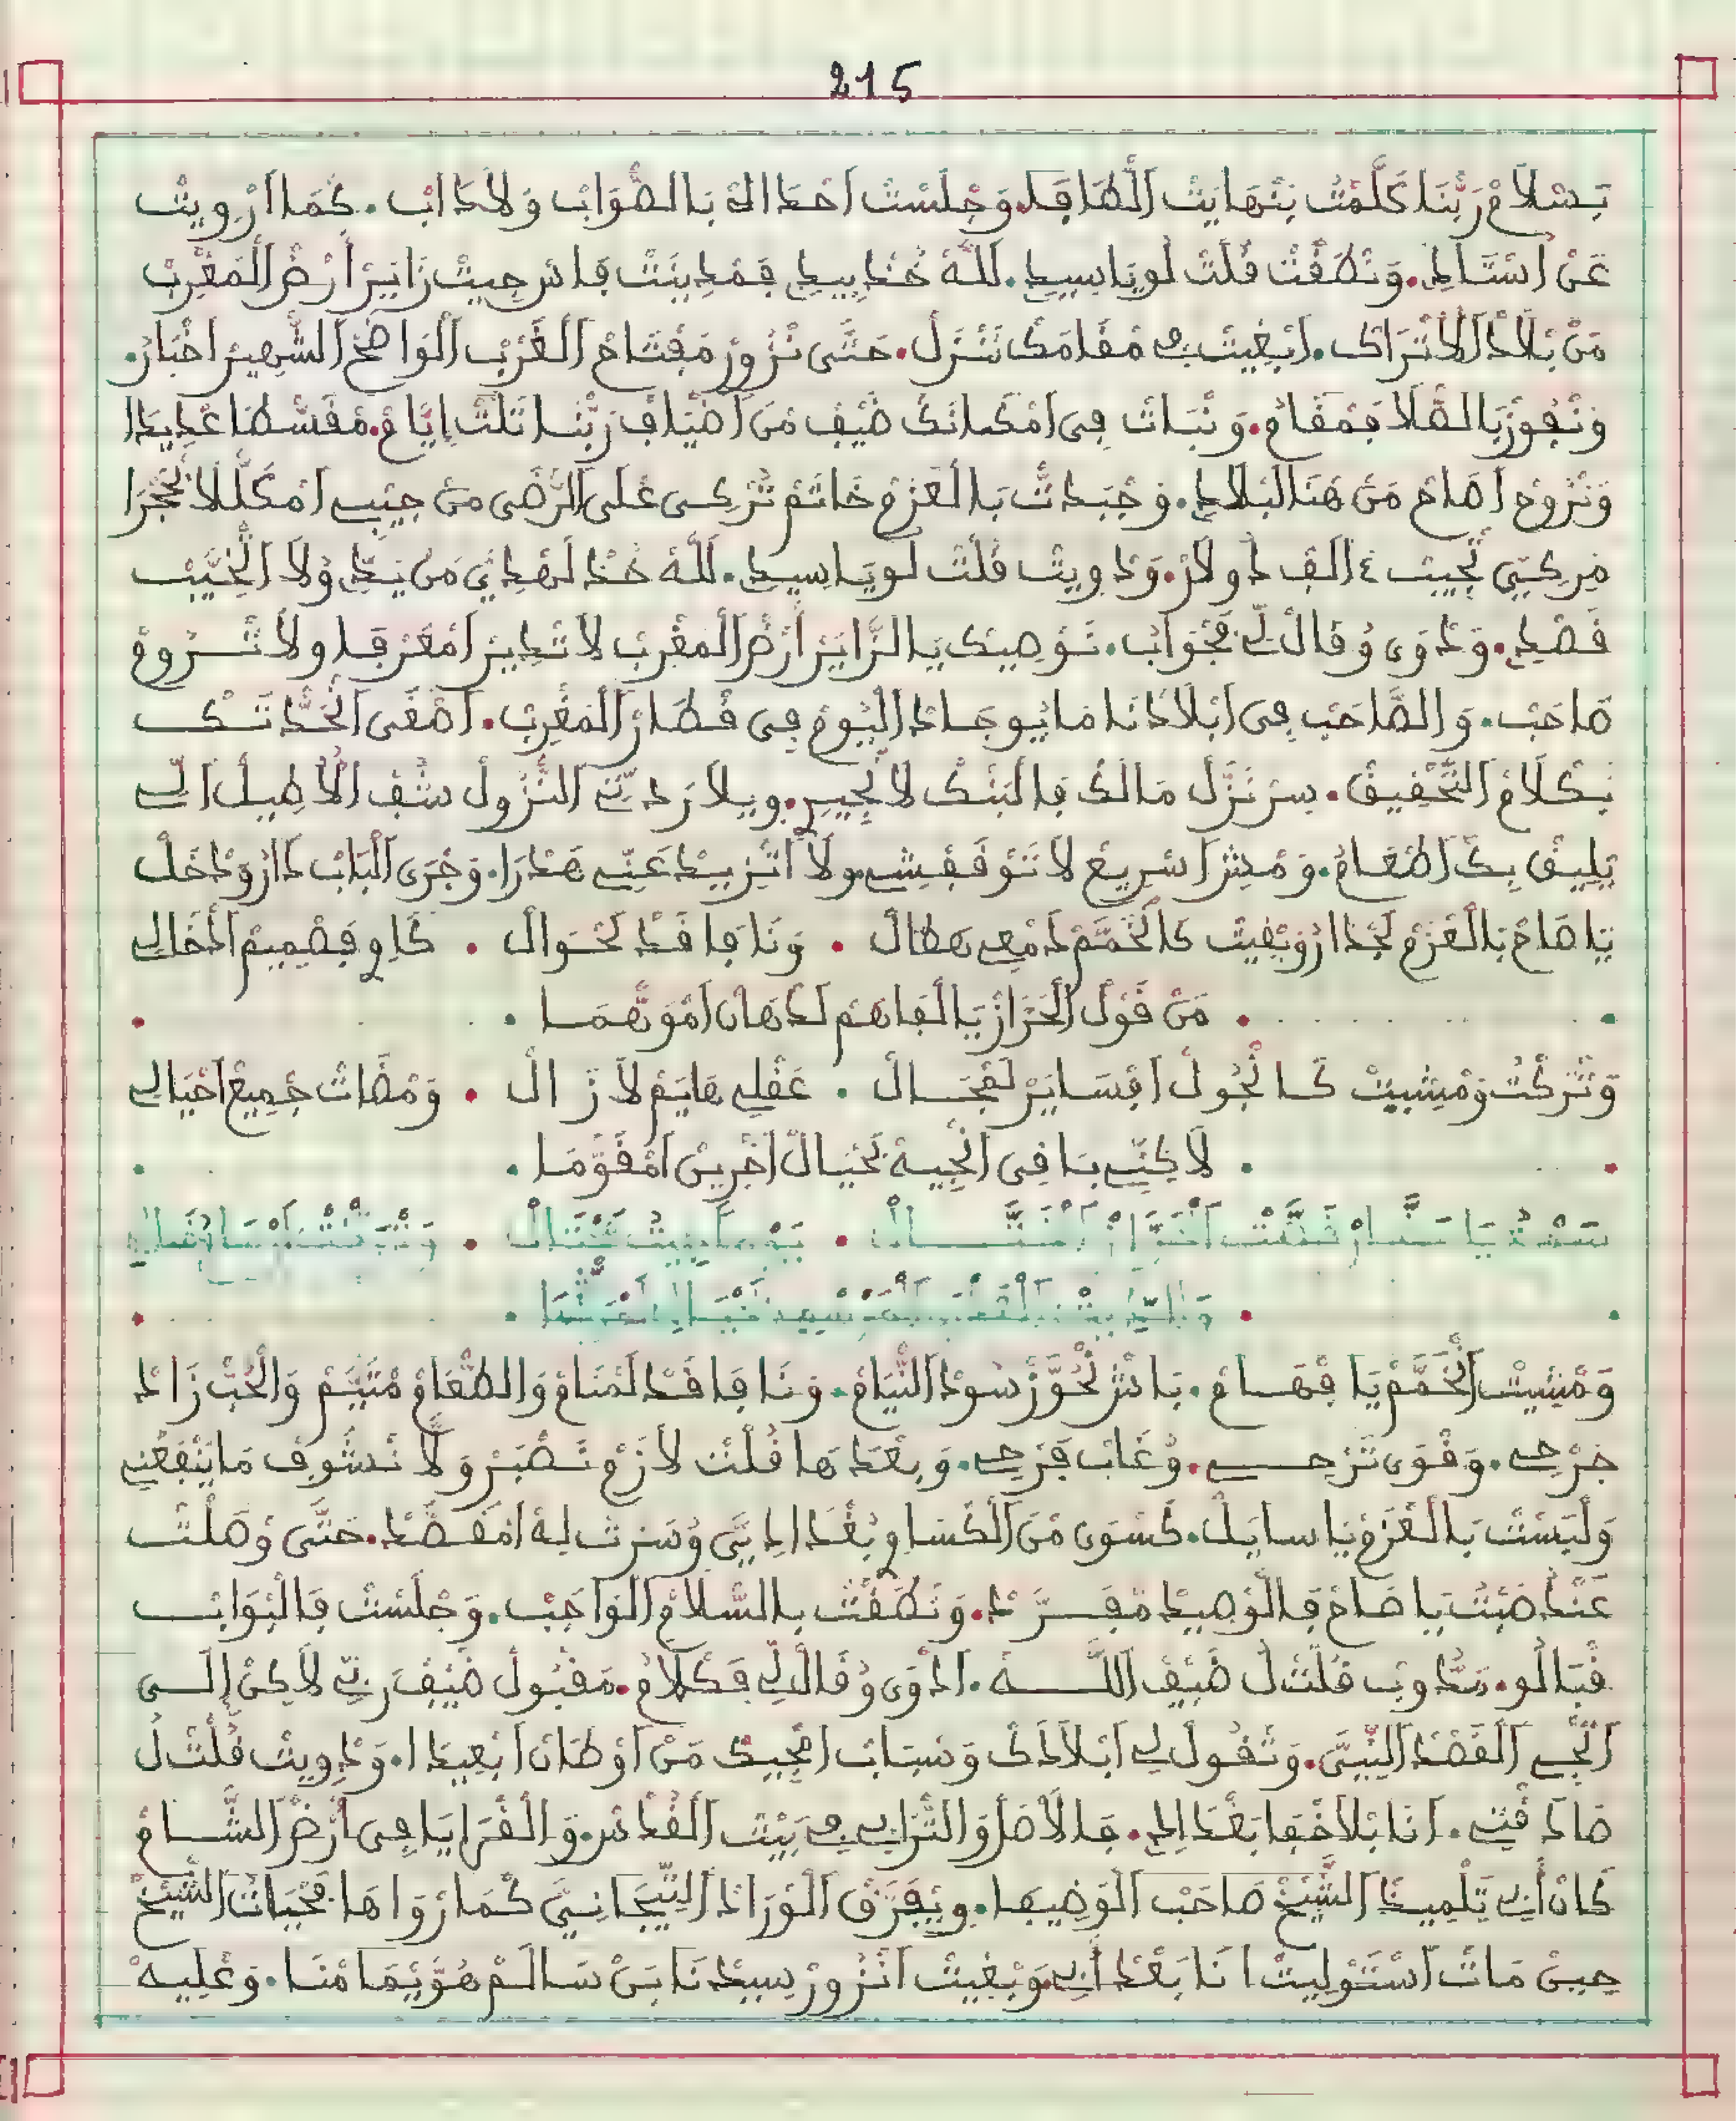 215
بَسْلَامْ رَبَّنَا كَلَّمْتُ بَنْهَايَتْ اللَّطَافَا. وَجْلَسْتْ اَحْدَاهْ بَالصَّوَابْ وَلَادَابْ. كِمَا اَرْوِيتْ
عَنْ اَسْتَادِ. وَنْطَقْتْ قُلْتْ لُو يَاسِيدِ. لَلَّهْ خُذْ بِيدِ فَمْدِينَتْ فَاسْ جِيتْ زَايَرْ أَرْضْ اَلْمَغْرِبْ
مَنْ بْلَادْ اَلَاتْرَاكْ. اَبْغِيتْ فِي مْقَامَكْ نَنْزَلْ. حَتَّى نْزُورْ مَفْتَاحْ اَلْغَرْبْ اَلْوَاضَحْ اَلشَّهِيرْ اَخْبَارُ.
وَنْفُوزْ بَالصَّلَا فَمْقَامُ. وَنْبَاتْ فِي اَمْكَانَكْ ضَيْفْ مَنْ اَضْيَافْ رَبَّنَا تَلْتْ اِيَّامْ. مْقَسْطَا عْدِيدَا
وَنْرُوحْ اَصَاحْ مَنْ هَنَا لَبْلَادِ. وَجْبَدْتْ بَالْعَزْمْ خَاتَمْ تُرْكِي عْلَى الرْضَى مَنْ جِيبِي اَمْكَلَّلْ لَحْجْرَا
مِرِكِّي تْجِيبْ ٤ اَلَفْ دُولَارْ. وَدْوِيتْ قُلْتْ لُو يَاسِيدِ. لَلَّهْ خُذْ لَهْدِيَّ مَنْ يَدِّ وْلَا اَتْخَيَّبْ
قَصْدِ. وَدْوَى وْقَالْ لِي فَجْوَابُ. نَوْصِيكْ يَا الزَّايَرْ أَرْضْ اَلْمَغْرِبْ لَا تْدِيرْ اَمْعَرْفَا وَلَا تْرُومْ
صَاحَبْ. وَالصَّاحَبْ فِي اَبْلَادْنَا مَا يُوجَادْ اَلْيُومْ فِي قْطَارْ اَلْمَغْرِبْ. اَصْغَى اَلْخَدْتَكْ
بَكْلَامْ اَلتَّحْقِيقْ. سِرْ نَزَّلْ مَالَكْ فَالْبَنْكْ لَا تْجِيرِ. وِيلَا رَدْتِي اَلنْزُولْ شُفْ اَلْأُطِيلْ اَلِّي
يْلِيقْ بِكْ اَطْعَامُ. وَمْشِ اَسْرِيعْ لَا تَوْقَفْشِي وَلَا اَتْزِيدْ عَنِّي هَدْرَا. وَجْرَى اَلْبَابْ دَارُ وَدْخَلْ
يَا صَاحْ بَالْعَزْمْ لَجْدَارُ وَبْقِيتْ كَانْخَمَّمْ دَمْعِي هَطَّالْ • وَنَا فَاقَدْ لَحْوَالْ • كَاوِ فَصْمِيمْ اَدْخَالِي
• مَنْ قَوْلْ اَلْحَرَّازْ يَا الْفَاهَمْ لَدْهَانْ اَمْوَهْمَا •
وَتْرَكْتُ وَمْشِيتْ كَانْجُولْ اَفْسَايَرْ لَفْجَالْ • عَقْلِي هَايَمْ لَا زَالْ • وَمْضَاتْ جْمِيعْ اَحْيَالِي
• لَاكِنِّي بَاقِي اَنْجِيهْ بَحْيَالْ اَخْرِينْ اَمْقَوْمَا •
وَمْشِيتْ اَنْخَمَّمْ يَا فْهَامْ. بَاشْ نْحَوَّزْ سُودْ اَلنْيَامْ. وَنَا فَاقَدْ لَمْنَامْ وَالطْعَامْ مْتَيَّمْ وَالْحُبّْ زَادْ
جَرْحِي. وَقْوَى تَرْحِي. وْغَابْ فَرْحِي. وَبَعْدْهَا قُلْتْ لَازَمْ نَصْبَرْ وَلَّا نْشُوفْ مَا يَنْفَعْنِي
وَلْبَسْتْ بَالْعَزْمْ يَا سَايَلْ. كَسْوَى مَنْ اَلْكْسَاوِ بَغْدَادِيَّى وْسَرْتْ لِهْ اَمْقَصَّدْ. حَتَّى وْصَلْتْ
عَنْدُ صَبْتُ يَا صَاحْ فَالْوْصِيدْ مْفَرَّدْ. وَنْطَقْتْ بَالسَّلَامْ اَلْوَاجَبْ. وَجْلَسْتْ فَالْبْوَابْ
قْبَالُو. نَدْوِي قُلْتْ لُ ضَيْفْ اَللَّهْ. اَدْوَى وْقَالْ لِي فَكْلَامُ. مَقْبُولْ ضَيْفْ رَبِّي لَاكِنْ اِلَى
اَتْجِي اَلْقَصْدْ اَلنِّيَّى. وَتْقُولْ لِي اَبْلَادَكْ وَسْبَابْ اَمْجِيكْ مَنْ اَوْطَانْ اَبْعِيدَا. وَدْوِيتْ قُلْتْ لُ
صَادَفْنِي. اَنَا بْلَا خْفَا بَغْدَادِي. فَالْأَصْلْ وَالتْرَابِي فِي بَيْتْ اَلْقُدْسْ. وَالْقْرَايَا فِي أَرْضْ اَلشَّامْ
كَانْ أَبِي تَلْمِيذْ اَلشَّيْخْ صَاحَبْ اَلْوَضِيفَا. وِيفَرَّقْ اَلْوْرَادْ اَلتِّيجَانِيَّ كْمَا رْوَاهَا فَحْيَاةْ الشَّيْخْ
حِينْ مَاتْ اَسْتَوْلِيتْ اَنَا بَعْدْ أَبِي وَبْغِيتْ اَنْزُورْ سِيدْنَا بَنْ سَالَمْ هُوَ يْمَامْنَا. وَعْلِيهْ